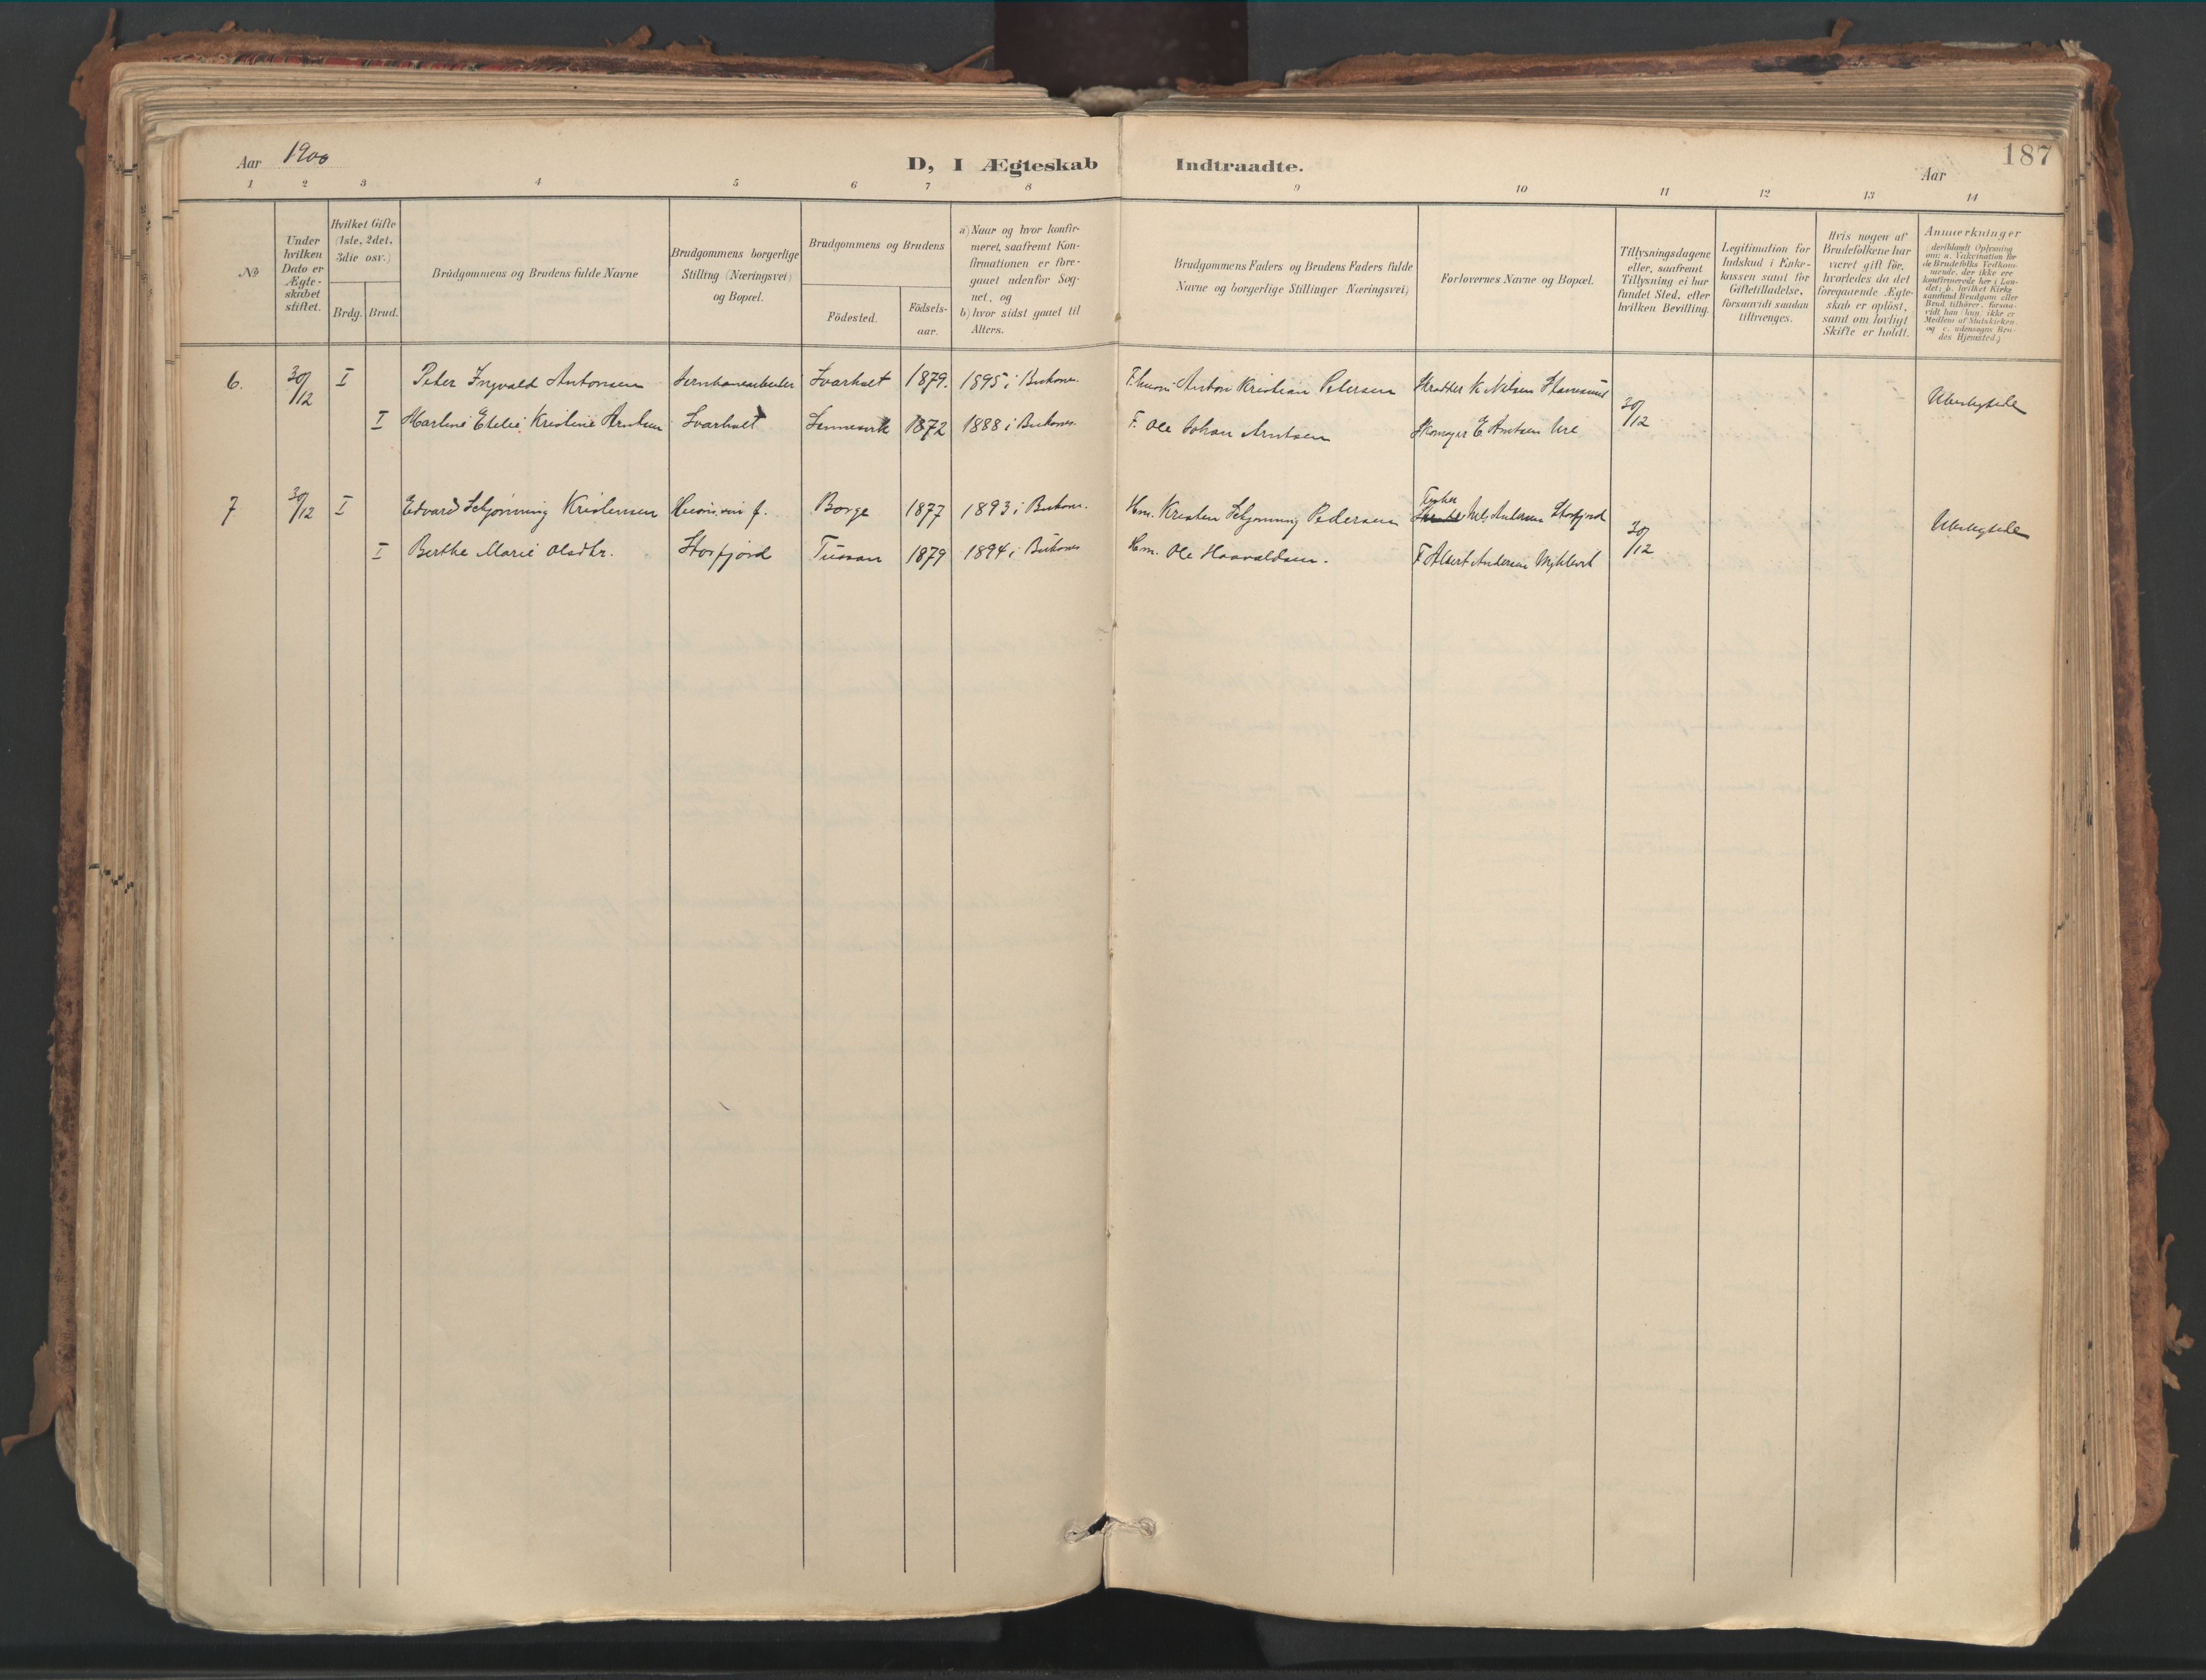 187
Aar 1900
D, I Ægteskab Indtraadte.
Aar
1 2 3 4 5 6 7 8 9 10 11 12 13 14
No
Under hvilken Dato er Ægteskabet stiftet.
Hvilket Gifte (1ste, 2det, 3die osv.)
Brdg. Brud.
Brudgommens og Brudens fulde Navne
Brudgommens borgerlige Stilling (Næringsvei) og Bopæl.
Brudgommens og Brudens
Födested.
Födsels-aar.
a) Naar og hvor konfir-
meret, saafremt Kon-
firmationen er fore-
gaaet udenfor Sog-
net, og
b) hvor sidst gaaet til
Alters.
Brudgommens Faders og Brudens Faders fulde
Navne og borgerlige Stillinger Næringsvei)
Forlovernes Navne og Bopæl.
Tillysningsdagene
eller, saafremt
Tillysning ei har
fundet Sted, efter
hvilken Bevilling.
Legitimation for
Indskud i Enke-
kassen samt for
Giftetilladelse,
forsaavidt saadan
tiltrænges.
Hvis nogen af
Brudefolkene har
været gift för,
hvorledes da det
foregaaende Ægte-
skab er oplöst,
samt om lovligt
Skifte er holdt.
Anmærkninger
(deriblandt Oplysning
om: a. Vaccination for
de Brudefolks Vedkom-
mende, der ikke ere
konfirmerede her i Lan-
det; b. hvilket Kirke-
samfund Brudgom eller
Brud tilhörer, forsaa-
vidt han (hun) ikke er
Medlem af Statskirken
og c. udensogns Bru-
des Hjemsted.)
6. 30/12 I Peter Ingvald Antonsen Svarholt 1879. 1895 i Buksnes. Anton Kristian Petersen K. Nilsen 30/12
I Kristine Arntsen Svarholt 1872 1888 i Buksnes. F. Ole Johan Arntsen E Arntsen Ure
7 30/12 I Edvard Schjønning Kristensen Borge 1877 1893 i Buksnes. Hm. Kristen Schjønning Pedersen Fisker Nils Andersen Storfjord 30/12
I Berthe Marie Olsdtr. Storfjord 1879 1894 i Buksnes Hm. Ole Haavaldsen. F Albert Andersen